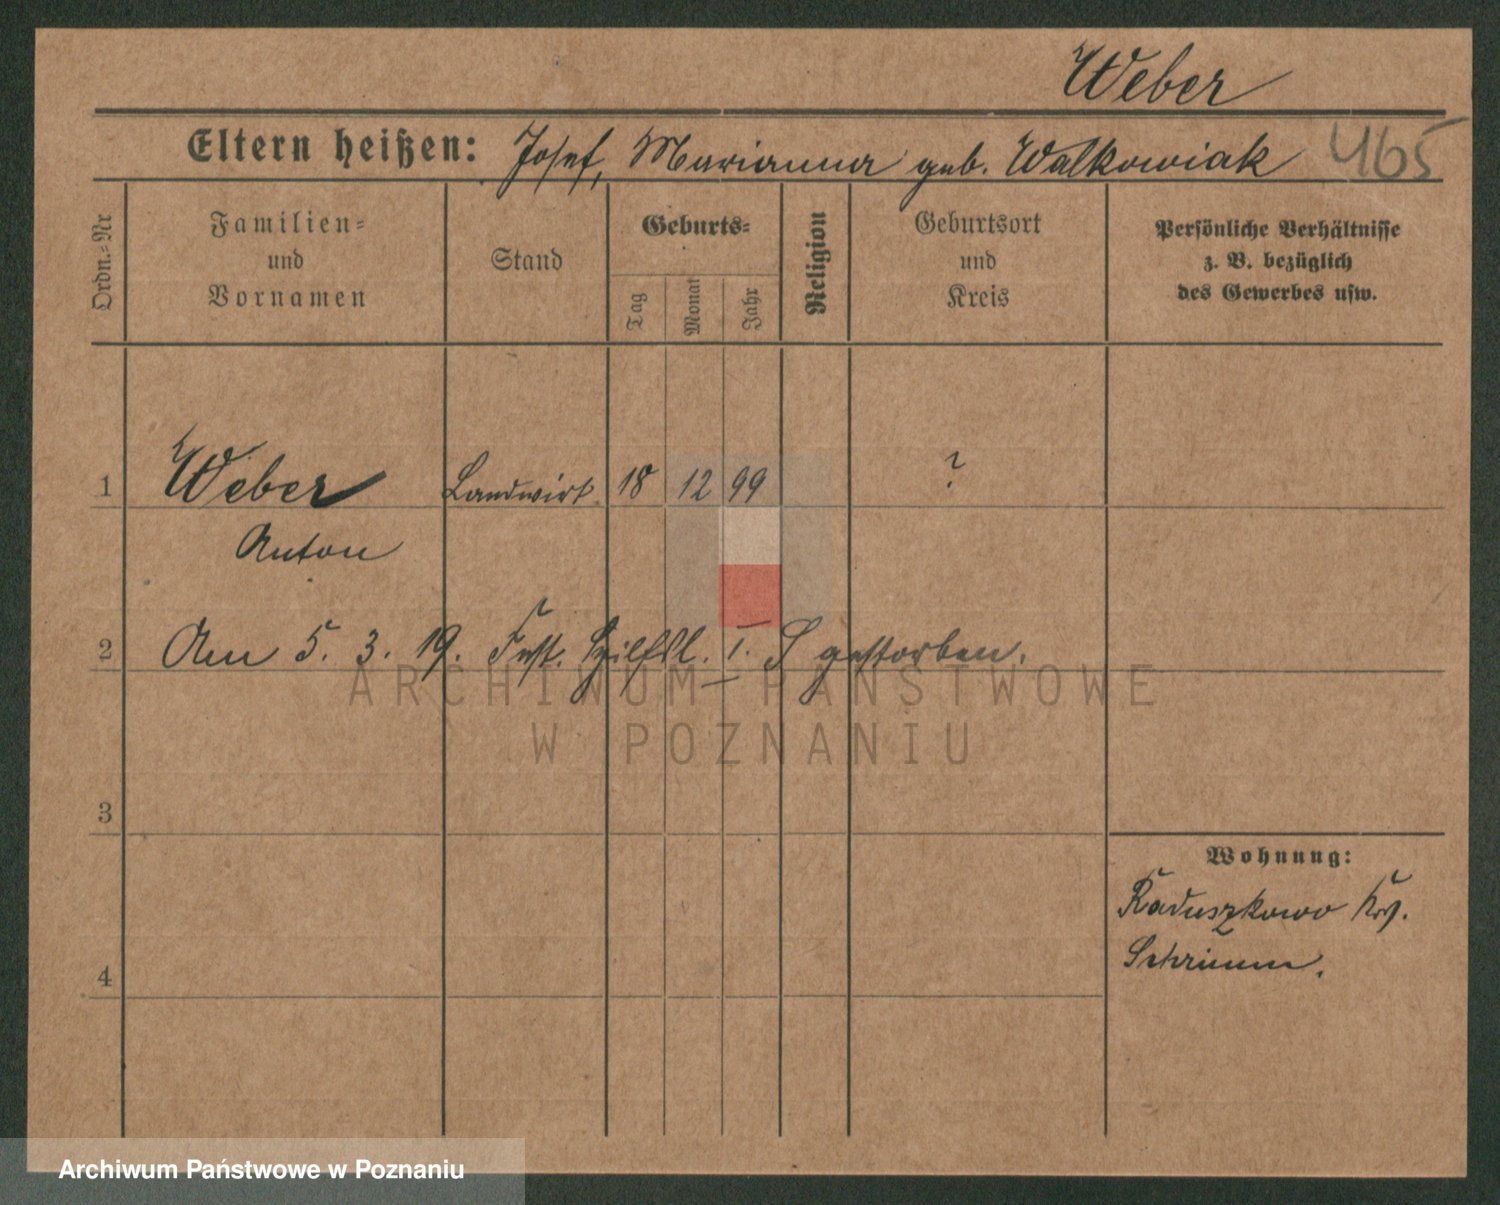 Weber
Eltern heißen: Josef, Marianna geb. Walkowiak 465
Ordn.=Nr
Familien=
und
Vornamen
Stand
Geburts=
Tag
Monat
Jahr
Religion
Geburtsort
und
Kreis
Persönliche Verhältnisse
z. B. bezüglich
des Gewerbes usw.
1 Weber Landwirt 18 12 99 ?
Anton
2 Am 5. 3. 19. Fest. I. gestorben.
ARCHIWUM PAŃSTWOWE
W POZNANIU
3
Wohnung:
Raduszkowo Krs.
4 Schrimm.
Archiwum Państwowe w Poznaniu